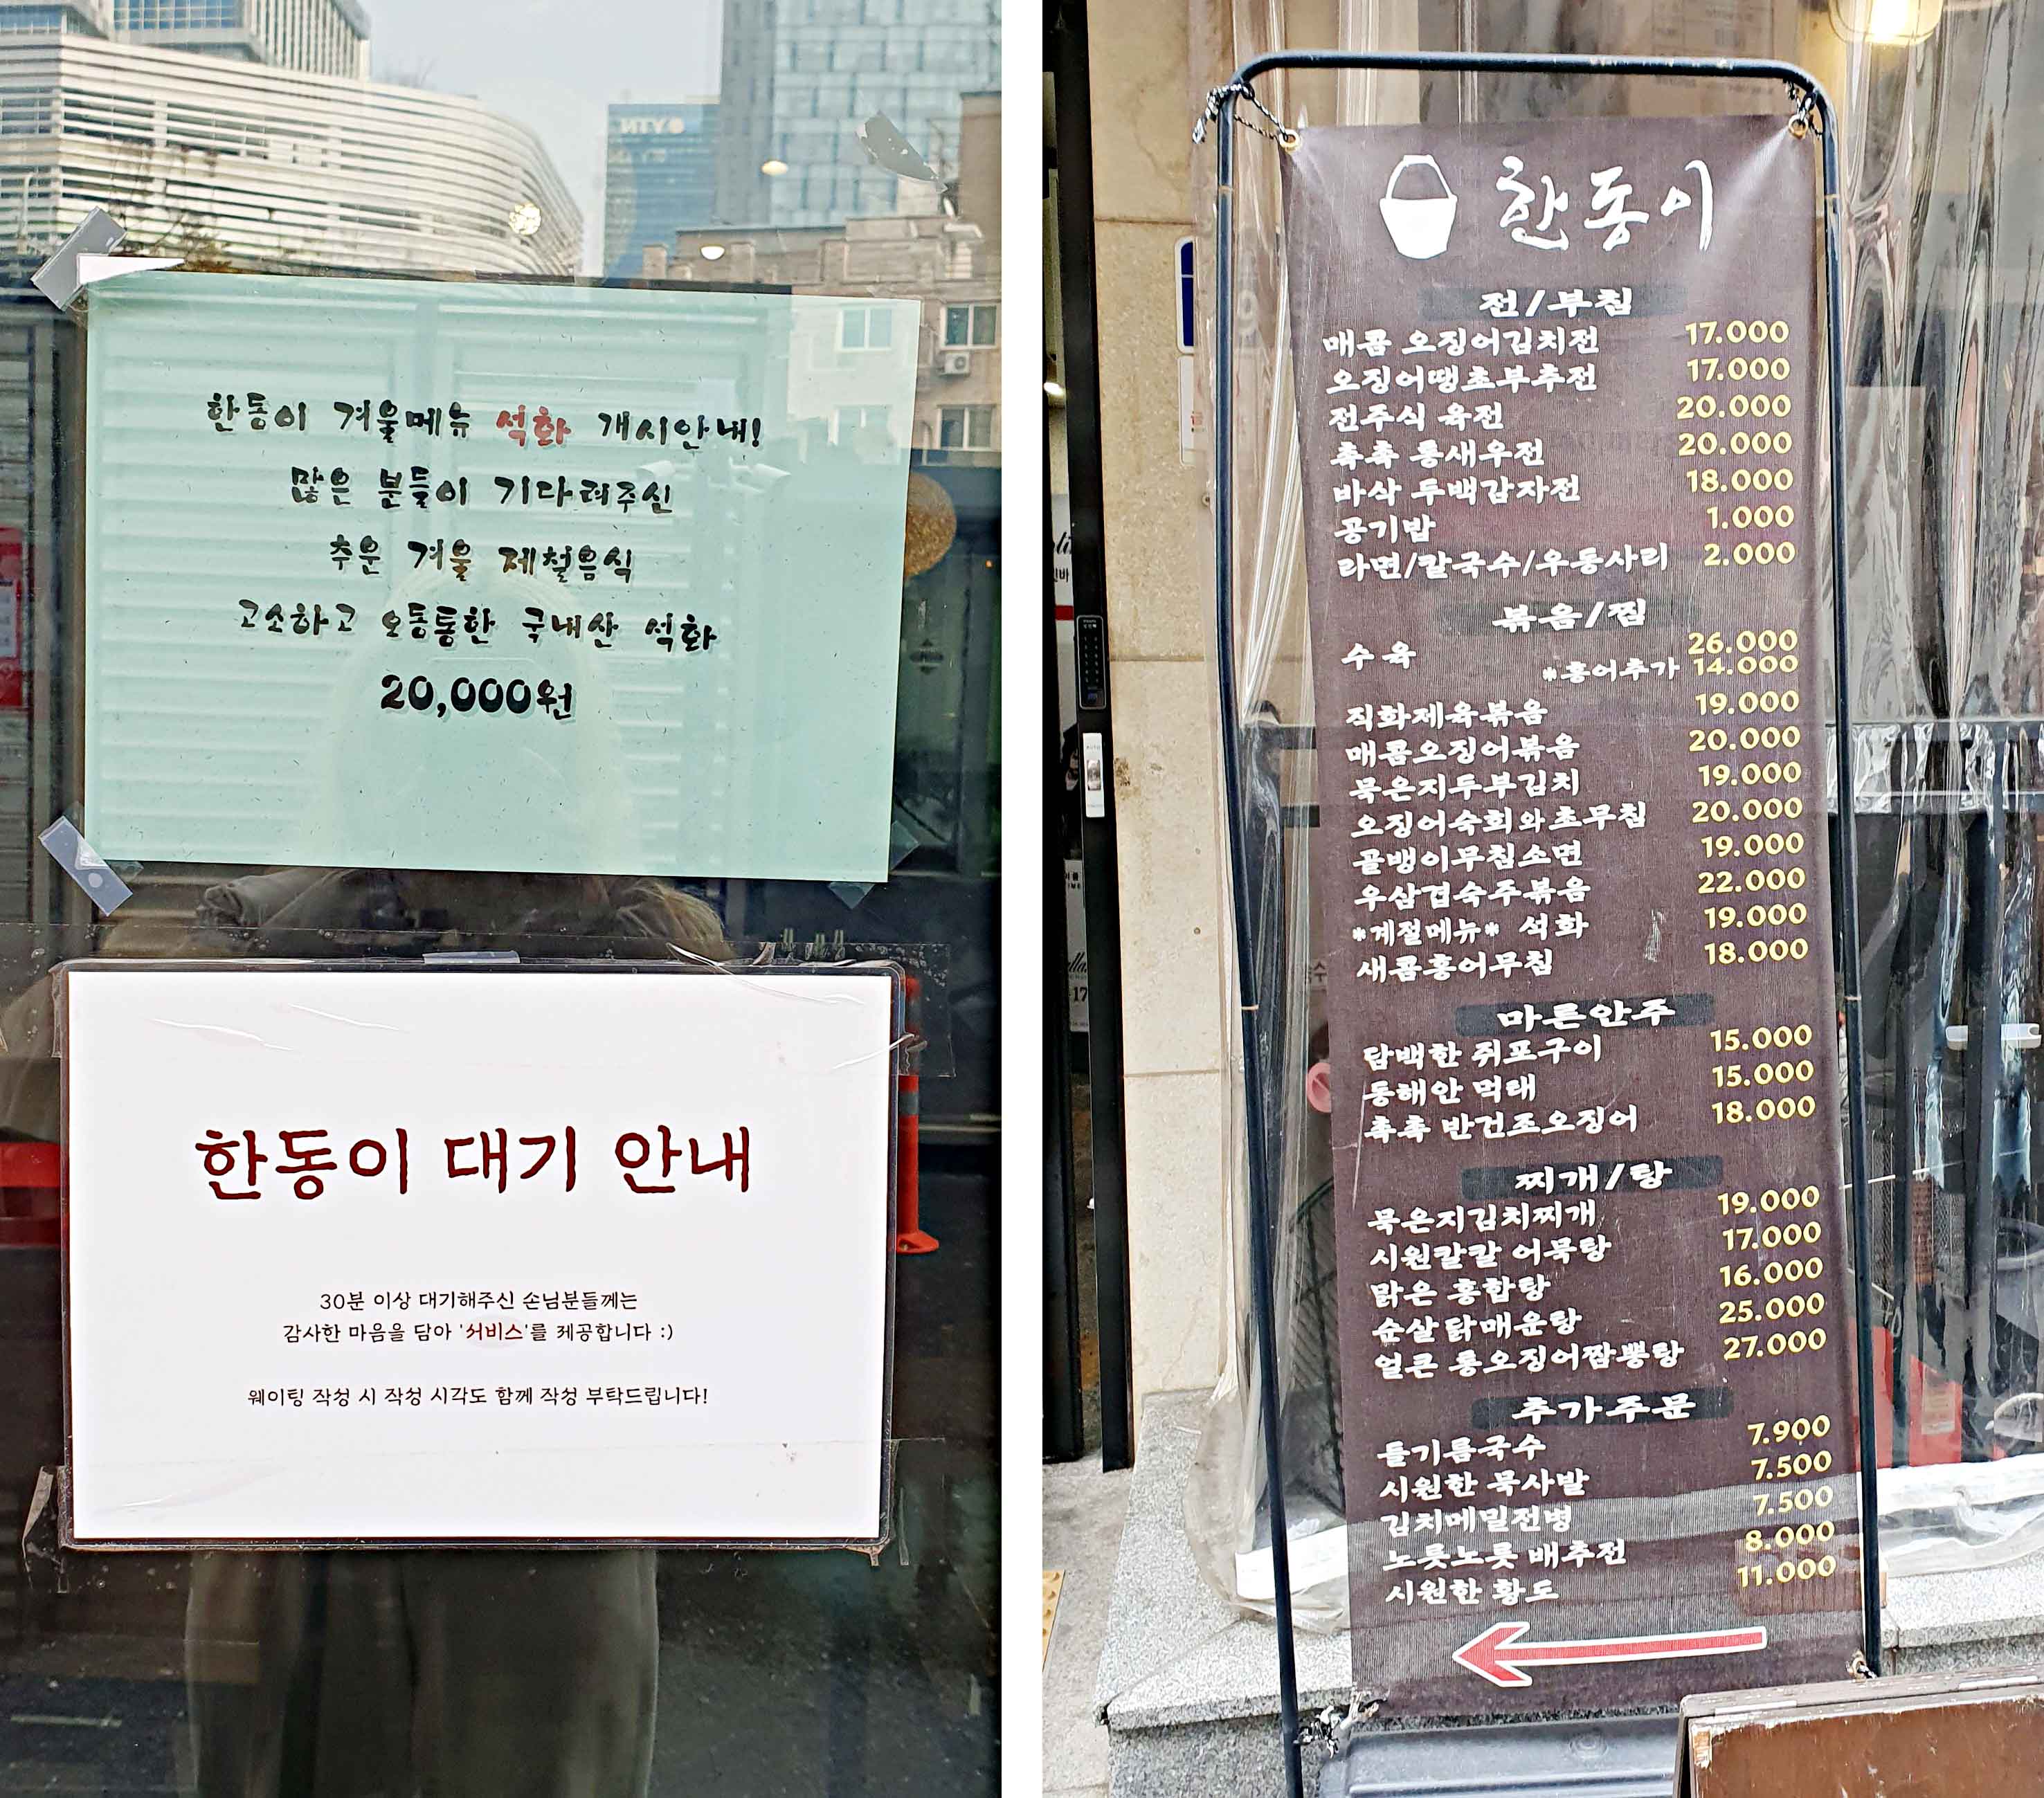 YTN
한동이 겨울메뉴 석화 개시안내!
많은 분들이 기다려주신
추운 겨울 제철음식
고소하고 오동통한 국내산 석화
20,000원
한동이 대기 안내
30분 이상 대기해주신 손님분들께는
감사한 마음을 담아 '서비스'를 제공합니다 :)
웨이팅 작성 시 작성 시각도 함께 작성 부탁드립니다!
한동이
전/부침
매콤 오징어김치전 17.000
오징어땡초부추전 17.000
전주식 육전 20.000
촉촉 통새우전 20.000
바삭 투백감자전 18.000
공기밥 1.000
라면/칼국수/우동사리 2.000
볶음/찜
수육 26.000
*홍어추가 14.000
직화제육볶음 19.000
매콤오징어볶음 20.000
묵은지두부김치 19.000
오징어숙회와초무침 20.000
골뱅이무침소면 19.000
우삼겹숙주볶음 22.000
*계절메뉴* 석화 19.000
새콤홍어무침 18.000
마른안주
담백한 쥐포구이 15.000
동해안 먹태 15.000
촉촉 반건조오징어 18.000
찌개/탕
묵은지김치찌개 19.000
시원칼칼 어묵탕 17.000
맑은 홍합탕 16.000
순살닭매운탕 25.000
얼큰 통오징어짬뽕탕 27.000
추가주문
들기름국수 7.900
시원한 묵사발 7.500
김치메밀전병 7.500
노릇노릇 배추전 8.000
시원한 황도 11.000